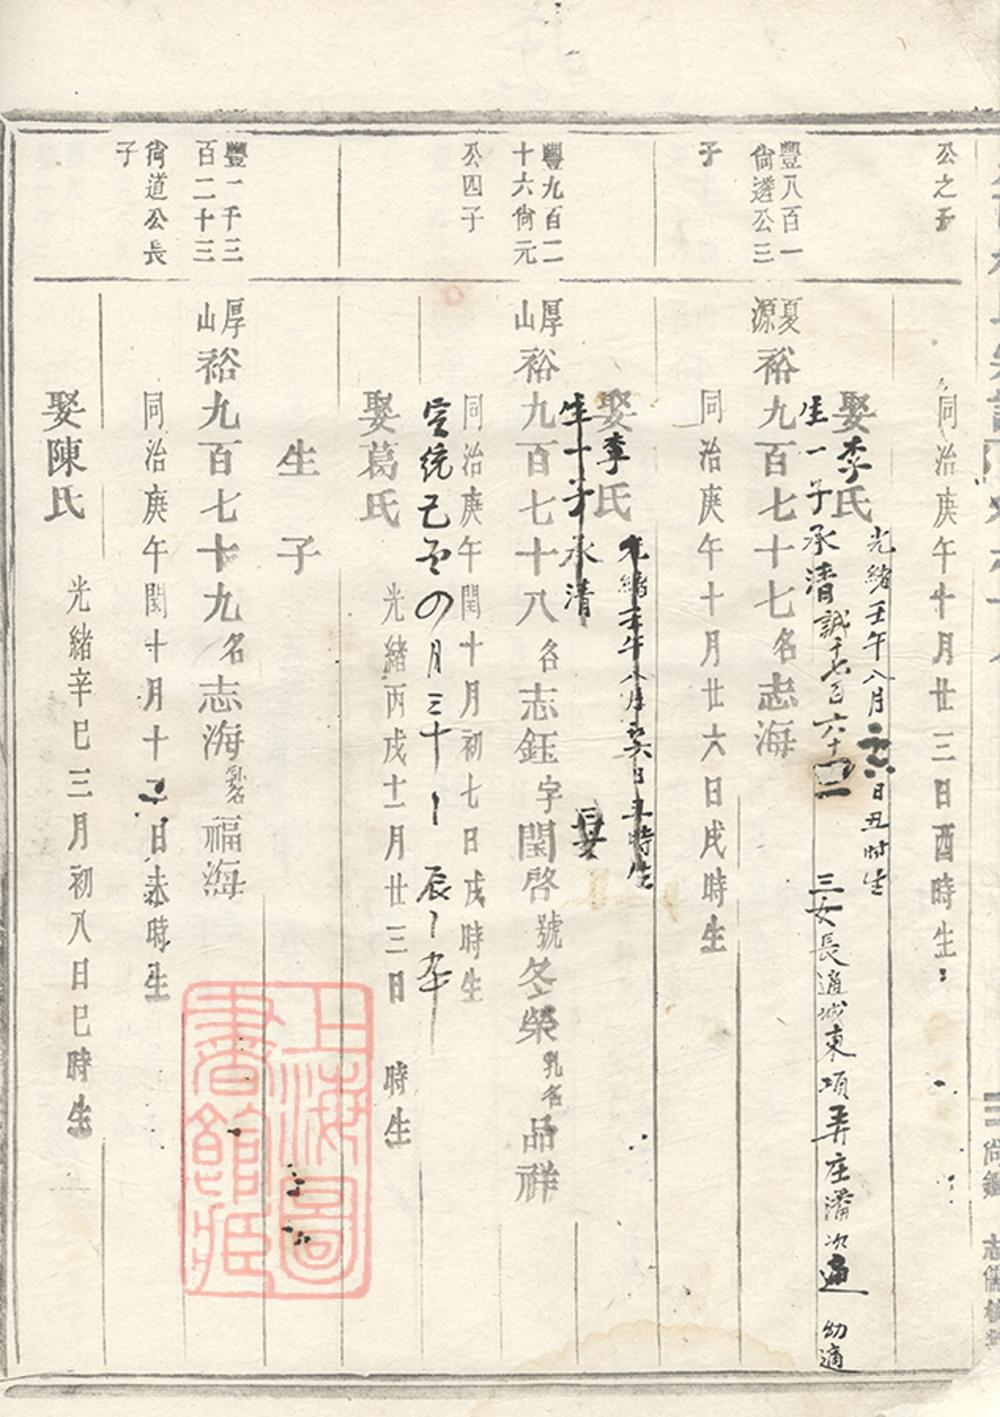 公之子
同治庚午十月廿三日酉時生
光緒壬午八月
日丑時生
娶李氏
生一子承清誠千七百六十二
三女長適城東項弄庄潘次適
幼適
豐八百一
尙遴公三
子
夏源
裕九百七十七名志海
同治庚午十月廿六日戌時生
光緒壬午八月
日丑時生
娶李氏
生一子承清
豐九百二
十六尙元
公四子
厚山
裕九百七十八名志鈺字閏啓號冬榮乳名品祥
同治庚午閏十月初七日戌時生
宣統
月三十
娶葛氏
光緒丙戌十一月廿三日
時生
生子
豐一千三
百二十三
尙道公長
子
厚山
裕九百七十九名志海乳名福海
同治庚午閏十月十
日未時生
娶陳氏
光緒辛巳三月初八日巳時生
上海圖書館藏